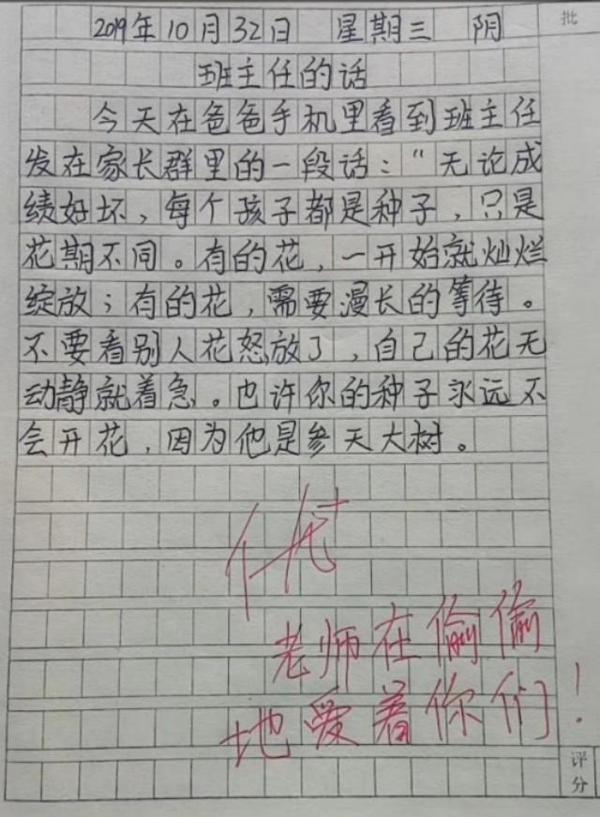 批
2019年10月32日 星期三 阴
班主任的话
今天在爸爸手机里看到班主任
发在家长群里的一段话:“无论成
绩好坏,每个孩子都是种子,只是
花期不同。有的花,一开始就灿烂
绽放;有的花,需要漫长的等待。
不要看别人花怒放了,自己的花无
动静就着急。也许你的种子永远不
会开花,因为他是参天大树。
优+
老师在偷偷
地爱着你们!
评分